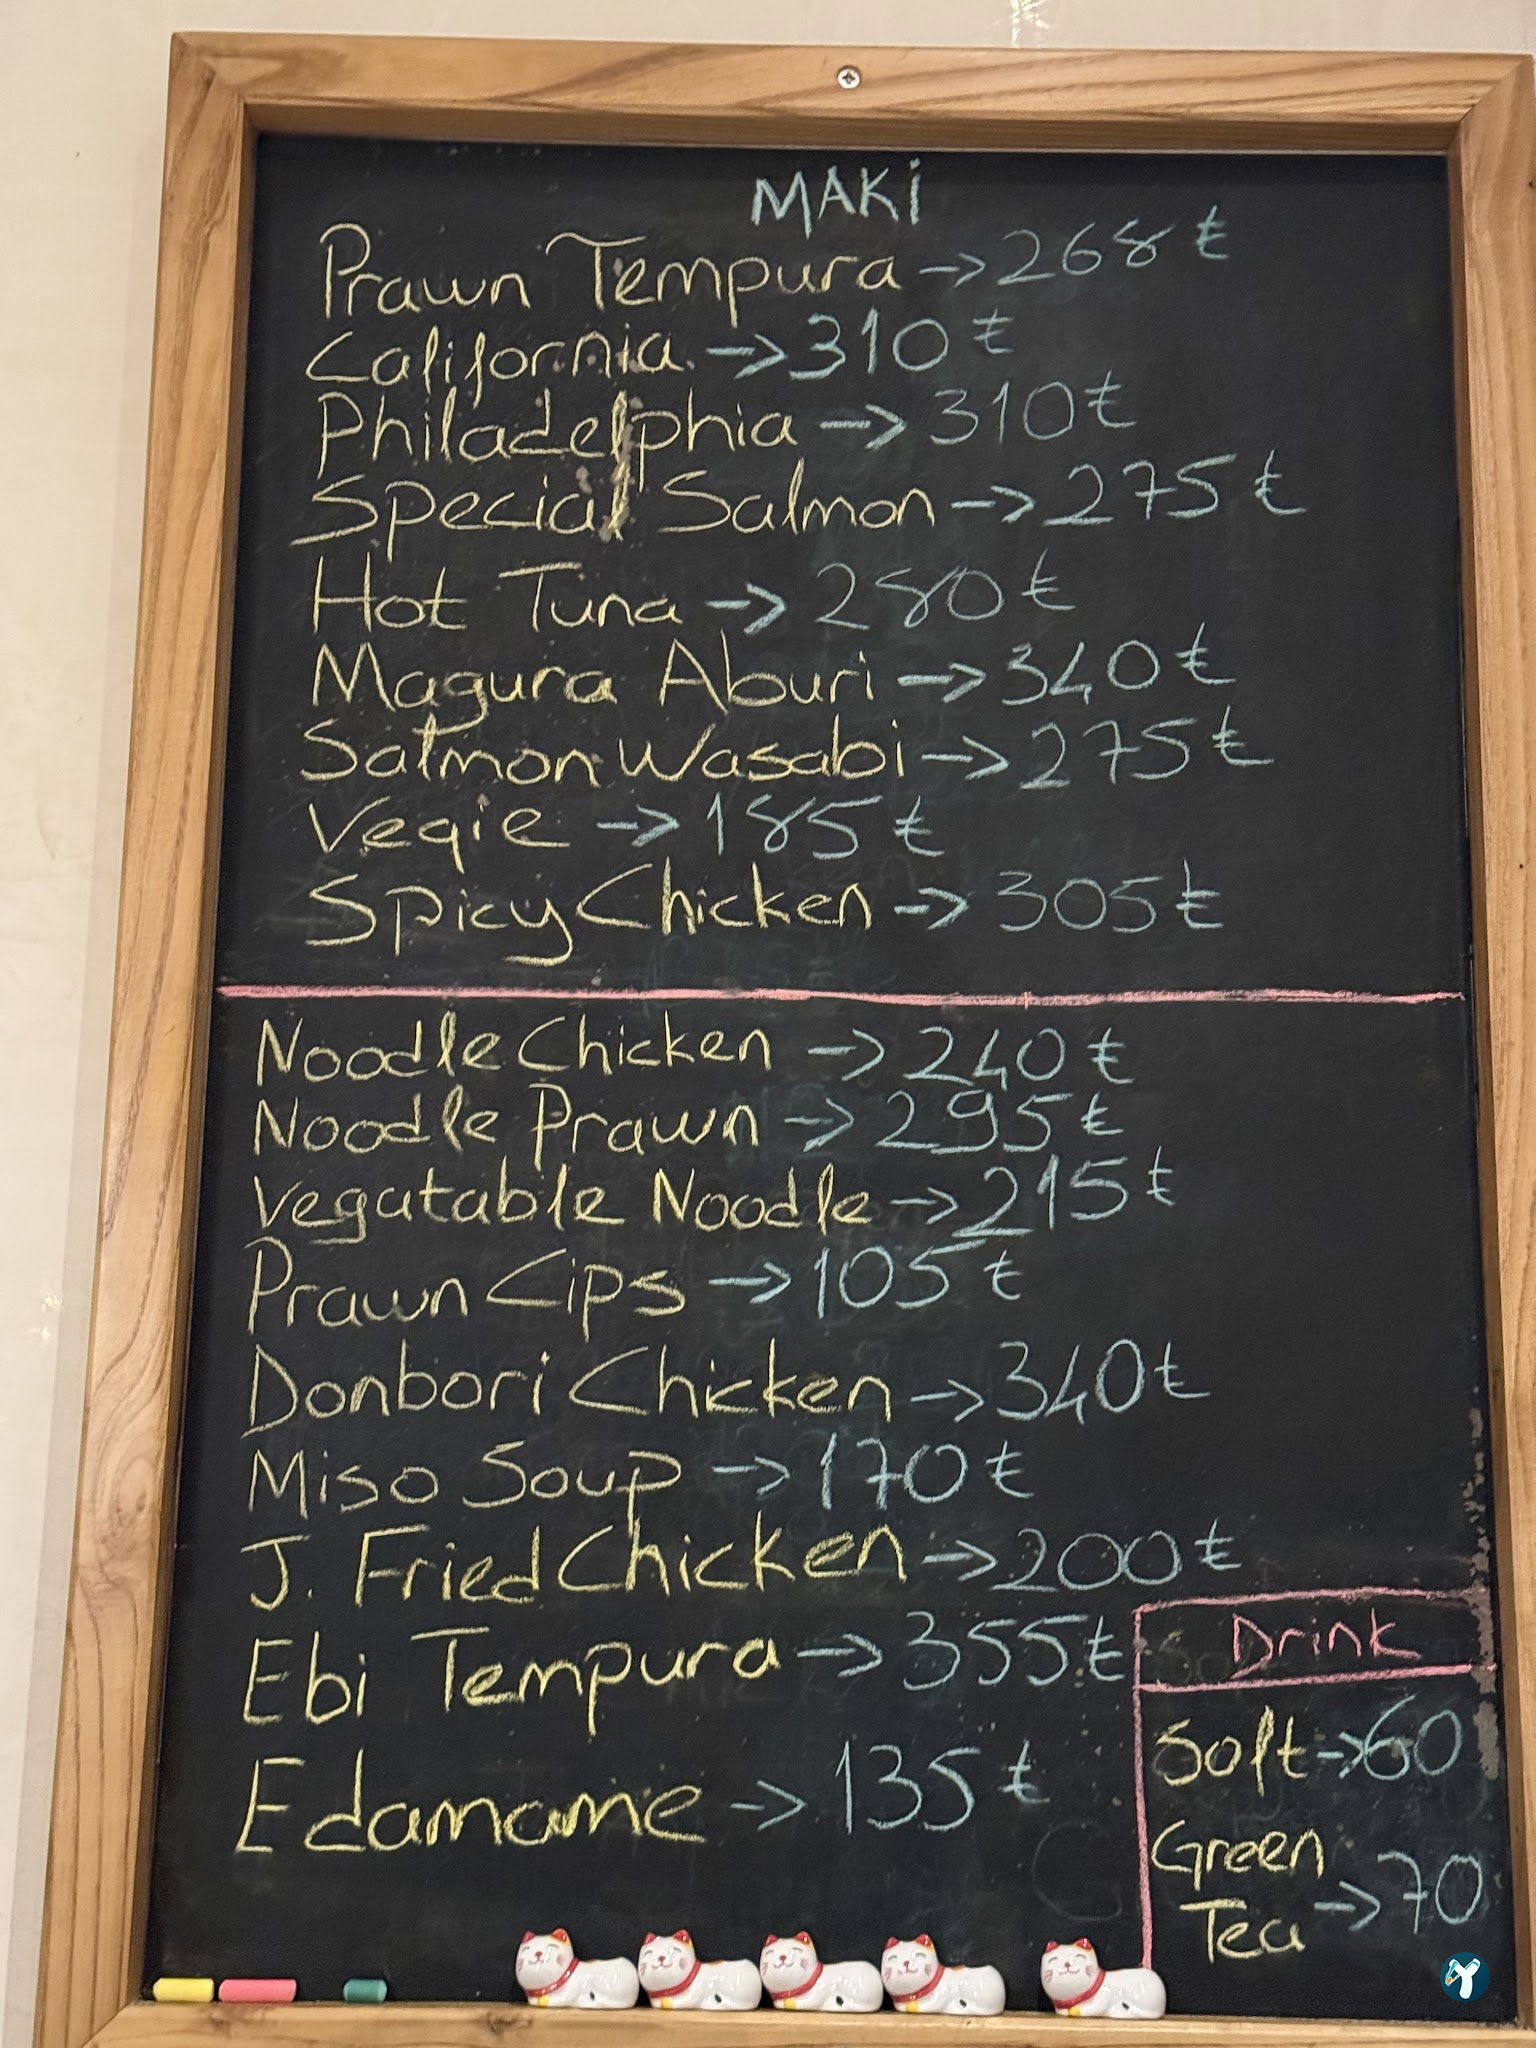 MAKİ
Prawn Tempura → 268 ₺
California → 310 ₺
Philadelphia → 310 ₺
Special Salmon → 275 ₺
Hot Tuna → 280 ₺
Magura Aburi → 340 ₺
Salmon Wasabi → 275 ₺
Vegie → 185 ₺
Spicy Chicken → 305 ₺
Noodle Chicken → 240 ₺
Noodle Prawn → 295 ₺
Vegatable Noodle → 215 ₺
Prawn Cips → 105 ₺
Donbori Chicken → 340 ₺
Miso Soup → 170 ₺
J. Fried Chicken → 200 ₺
Ebi Tempura → 355 ₺
Edamame → 135 ₺
Drink
Soft → 60
Green
Tea → 70